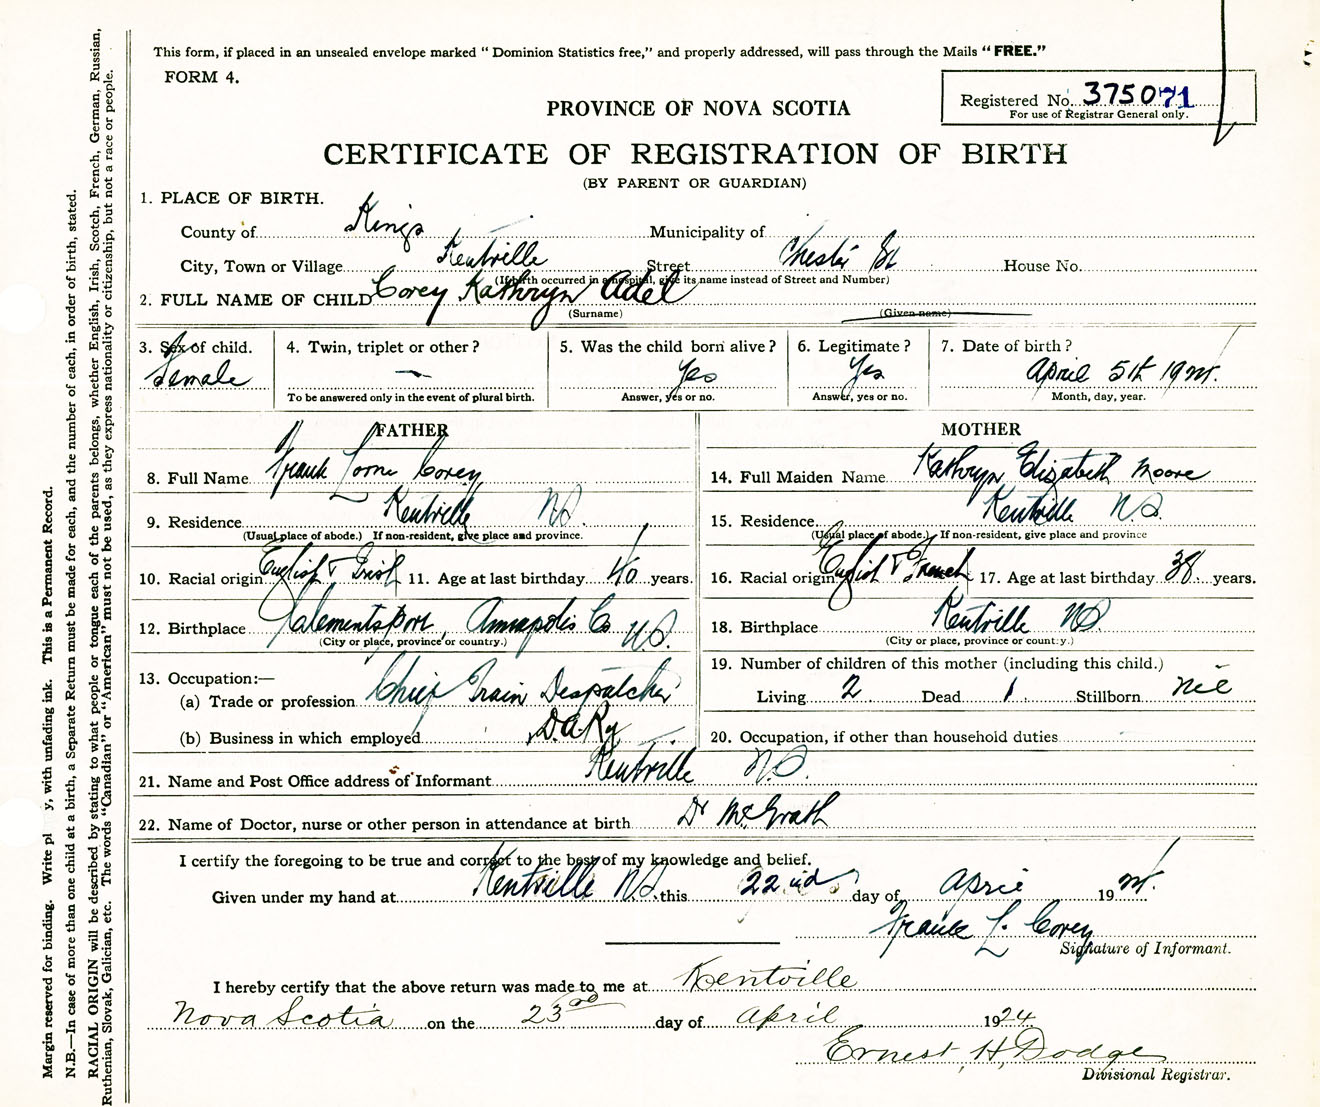 This form, if placed in an unsealed envelope marked "Dominion Statistics free," and properly addressed, will pass through the Mails "FREE."
FORM 4.
Registered No. 375071
For use of Registrar General only.
PROVINCE OF NOVA SCOTIA
CERTIFICATE OF REGISTRATION OF BIRTH
(BY PARENT OR GUARDIAN)
1. PLACE OF BIRTH.
County of Kings Municipality of
City, Town or Village Kentville Street Chester St House No.
(If birth occurred in a hospital, give its name instead of Street and Number)
2. FULL NAME OF CHILD Corey Kathryn Adel
(Surname) (Given name)
3. Sex of child. 4. Twin, triplet or other? 5. Was the child born alive? 6. Legitimate? 7. Date of birth?
Female — Yes Yes April 5th 1924.
To be answered only in the event of plural birth. Answer, yes or no. Answer, yes or no. Month, day, year.
FATHER MOTHER
8. Full Name Frank Lorne Corey 14. Full Maiden Name Kathryn Elizabeth Moore
9. Residence Kentville N.S. 15. Residence. Kentville N.S.
(Usual place of abode.) If non-resident, give place and province. (Usual place of abode.) If non-resident, give place and province
10. Racial origin English & Irish 11. Age at last birthday 40 years. 16. Racial origin English & French 17. Age at last birthday 38 years.
12. Birthplace Clementsport, Annapolis Co N.S. 18. Birthplace Kentville N.S.
(City or place, province or country.) (City or place, province or country.)
13. Occupation:— 19. Number of children of this mother (including this child.)
(a) Trade or profession Chief Train Despatcher Living 2 Dead 1. Stillborn nil
(b) Business in which employed D.A.Ry 20. Occupation, if other than household duties
21. Name and Post Office address of Informant Kentville N.S.
22. Name of Doctor, nurse or other person in attendance at birth Dr McGrath
I certify the foregoing to be true and correct to the best of my knowledge and belief.
Given under my hand at Kentville N.S. this 22nd day of April 1924.
Frank L. Corey
Signature of Informant.
I hereby certify that the above return was made to me at Kentville
Nova Scotia on the 23rd day of April 1924
Ernest H. Dodge
Divisional Registrar.
Margin reserved for binding. Write pl y, with unfading ink. This is a Permanent Record.
N.B.—In case of more than one child at a birth, a Separate Return must be made for each, and the number of each, in order of birth, stated.
RACIAL ORIGIN will be described by stating to what people or tongue each of the parents belongs, whether English, Irish, Scotch, French, German, Russian,
Ruthenian, Slovak, Galician, etc. The words "Canadian" or "American" must not be used, as they express nationality or citizenship, but not a race or people.